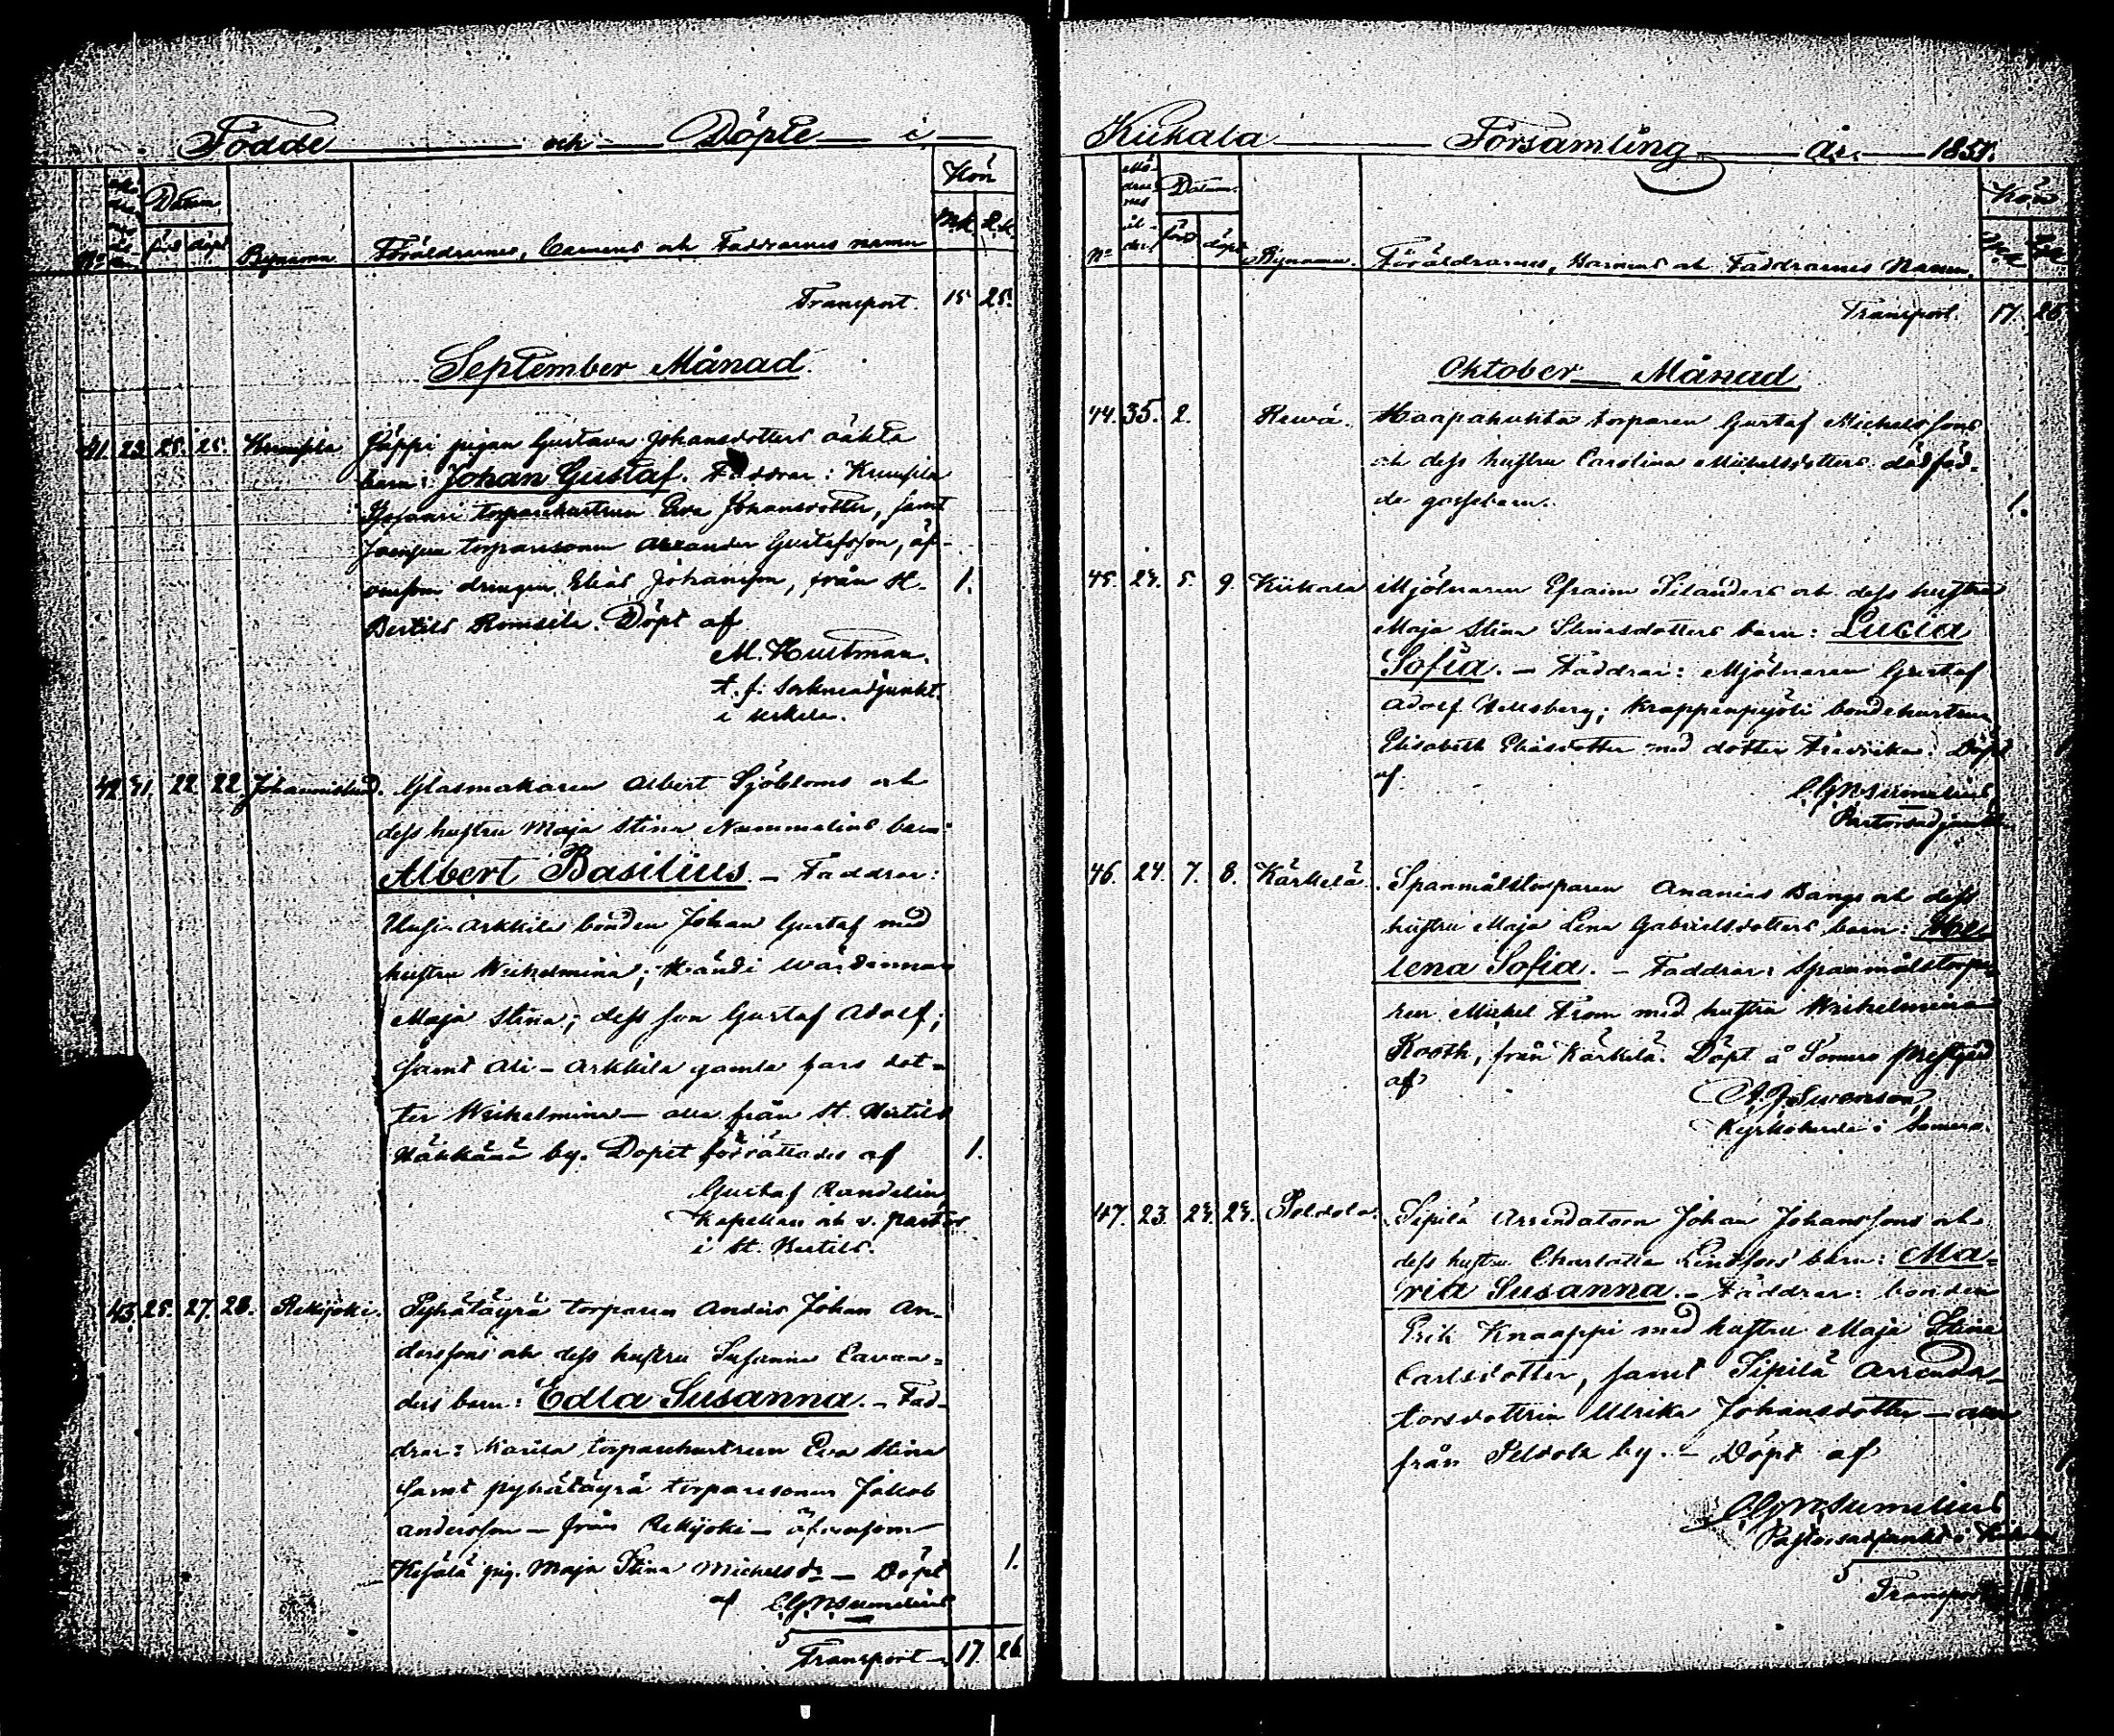 Födde och Döpte i
Kön
Datum
M.K. Q.K.
N:o född döpt Bynamn Föräldrarnes, Barnens och Faddrarnes namn
Transport. 15 25.
September Månad.
41. 23. 25. 25. Krumpila pigan Gustava Johansdotters oäkta
barn: Johan Gustaf. Faddrar: Krumpila
torparehustrun Eva Johansdotter, samt
torparesonen Alexander Gustafsson, äf-
vensom drängen Elias Johansson, från St. 1.
Bertils Romsila. Döpt af
M. Hustman.
t. f. Sockneadjunkt
i Uskela.
42. 41. 22. 22. Johannislund. Glasmakaren Albert Sjöbloms och
dess hustru Maja Stina Nummelins barn
Albert Basilius. – Faddrar:
Uusi-Arkkila bonden Johan Gustaf med
hustru Wilhelmina; Händi Wärdinnan
Maja Stina; dess son Gustaf Adolf;
samt Ali-Arkkila gamla fars dot-
ter Wilhelmina – alla från St. Bertils
Häkkälä by. Dopet förrättades af 1.
Gustaf Randelin
Kapellan och v. pastor
i St. Bertils.
43. 25. 27. 28. Rekijoki. Pyhätäyrä torparen Anders Johan An-
derssons och dess hustru Susanna Cavan-
ders barn: Edla Susanna. – Fad-
drar: torparehustrun Eva Stina
samt Pyhätäyrä torparesonen Jakob
Andersson – från Rekijoki – äfvensom
pig. Maja Stina Michelsd:r – Döpt 1.
af
Transport 17 26
Kiikala Församling år 1851.
Mödrarnes ålder. Datum. Kön
N:o född döpt Bynamn. Föräldrarnes, Barnens och Faddrarnes Namn.
Transport. 17. 26
Oktober Månad
44. 35. 2. Rewä. Haapahuhta torparen Gustaf Michelssons
och dess hustru Carolina Michelsdotters dödföd-
da gossebarn. 1.
45. 24. 5. 9. Kiikala Mjölnaren Efraim Silanders och dess hustru
Maja Stina Stinasdotters barn: Lucia
Sofia. – Faddrar: Mjölnaren Gustaf
Adolf Hellsberg; bondehustrun
Elisabeth Eliasdotter med dotter Fredrika. Döpt
af
Pastorsadjunkt
46. 24. 7. 8. Kärkelä. Spanmålstorparen Ananias Bangs och dess
hustru Maja Lena Gabrielsdotters barn:
lena Sofia. – Faddrar: Spanmålstorpa-
ren Michel From med hustru Wilhelmina
Rooth, från Kärkelä. Döpt å Somero prestgård
af
Kyrkoherde i Somero.
47. 23. 24. 24. Peldola. Sipilä Arrendatorn Johan Johanssons och
dess hustru Charlotta Lindfors barn: Ma-
ria Susanna. – Faddrar: bonden
Erik Knaappi med hustru Maja Stina
Carlsdotter, samt Sipilä Arrenda-
torsdottren Ulrika Johansdotter – alla
från Peldola by. – Döpt af
Pastorsadjunkt i Kiikala
Transport